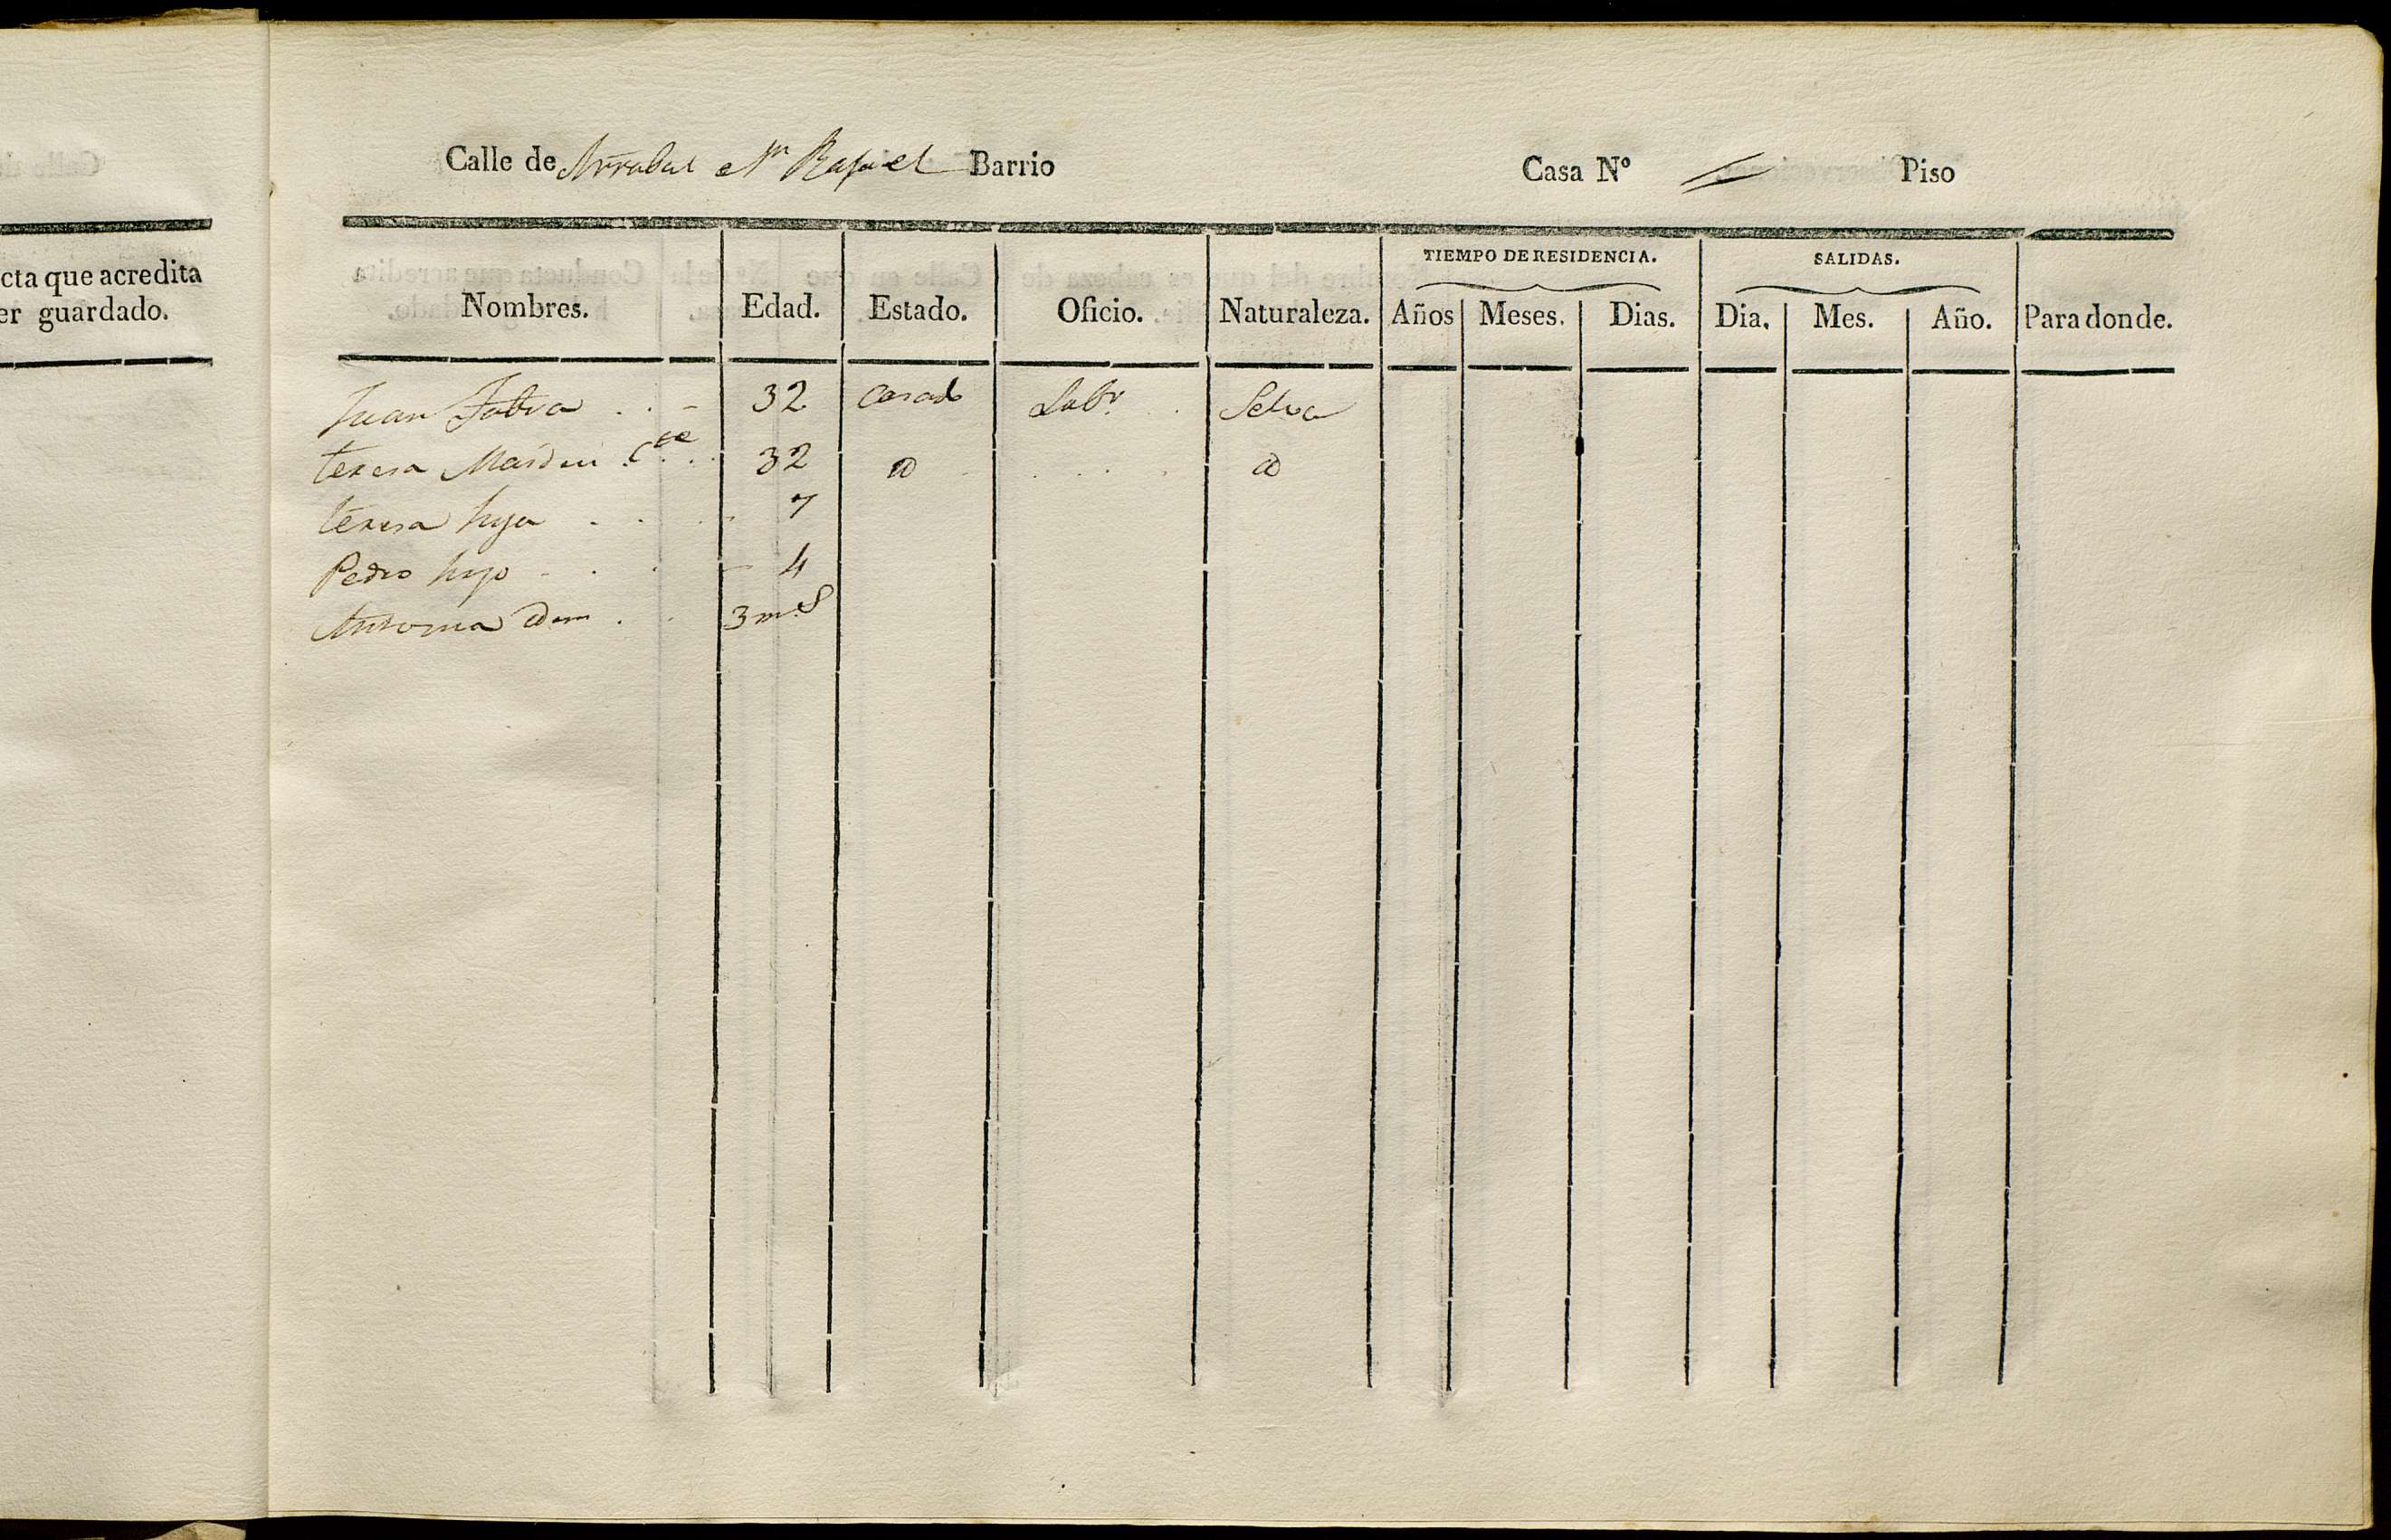 cta que acredita
er guardado.
Calle de Arrabal Sn Rafael Barrio Casa Nº Piso
TIEMPO DE RESIDENCIA. SALIDAS.
Nombres. Edad. Estado. Oficio. Naturaleza. Años Meses. Dias. Dia. Mes. Año. Para donde.
Juan Fabra . . - 32 Casado Labr. . Selva
teresa Cte . . 32 @ . . . @
teresa hija - . . - 7
Pedro hijo - . . - 4
Antonia Idem . . 3 ms